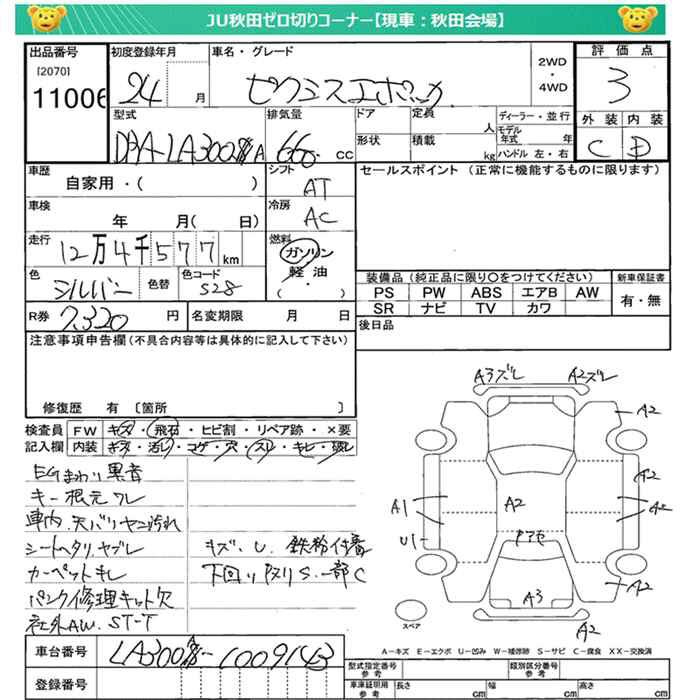 JU秋田ゼロ切りコーナー【現車：秋田会場】
出品番号 初度登録年月 車名・グレード 評価点
[2070]
11006 24 月 ピクシスエポック 2WD・4WD 3
型式 排気量 ドア 定員 人 ディーラー・並行 外装 内装
DBA-LA300A 660 cc 形状 積載 kg モデル年式 年 ハンドル 左・右 C D
車歴 自家用・( ) シフト AT セールスポイント (正常に機能するものに限ります)
車検 年 月( 日) 冷房 AC
走行 12万4千577km 燃料 ガソリン 軽油 ( ・ )
色 シルバー 色替 色コード S28
装備品 (純正品に限り○をつけてください) 新車保証書
PS PW ABS エアB AW 有・無
SR ナビ TV カワ
R券 7,320 円 名変期限 月 日
後日品
注意事項申告欄(不具合内容等は具体的に記入して下さい)
修復歴 有 〔箇所 〕
検査員 FW キズ・飛石・ヒビ割・リペア跡・×要
記入欄 内装 キズ・汚レ・コゲ・穴・スレ・キレ・破レ
EGまわり異音
キー根元ワレ
車内 天バリヤニ汚れ
シートヘタリ、ヤブレ
カーペットキレ
パンク修理キット欠
社外AW. ST-T
キズ、U、鉄粉付着
下回りサビS.一部C
A3ズレ A2ズレ
A2
A2
A1 A2 A2
U1
A2
A3
A2
スペア
A－キズ E－エクボ U－凹み W－補修跡 S－サビ C－腐食 X X－交換済
車台番号 LA300A-1009143
登録番号
型式指定番号 参考 類別区分番号 参考
車庫証明用 参考 長さ cm 幅 cm 高さ cm